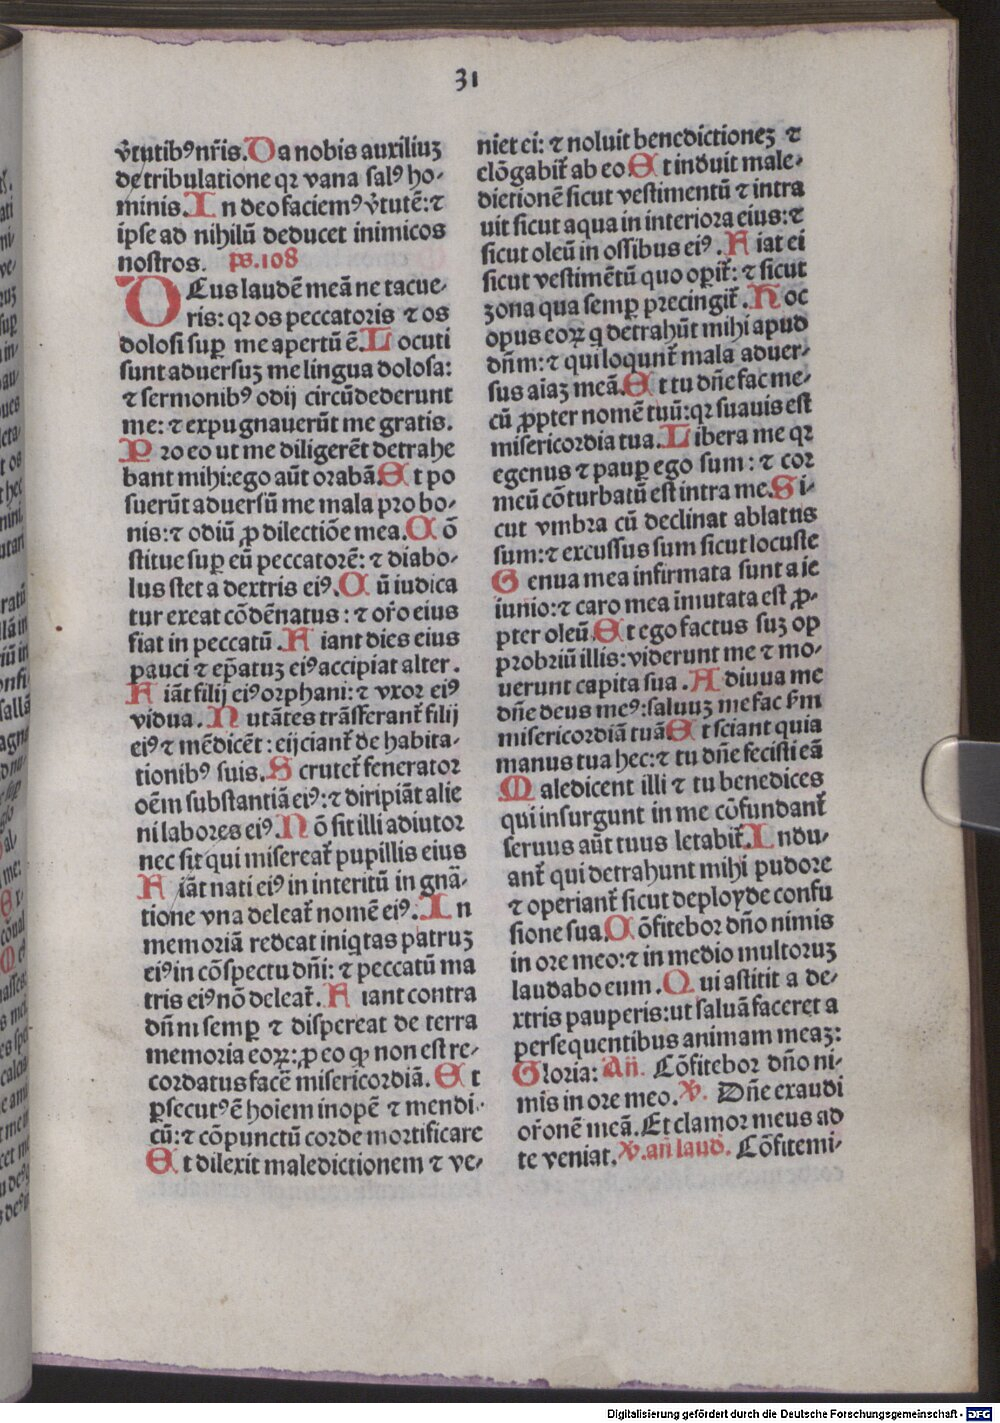 31
v̄tutibꝰ nr̄is. Da nobis auxiliuꝫ
de tribulatione qꝛ vana salꝰ ho-
minis. In deo faciemꝰ v̄tutē: ⁊
ipse ad nihilū deducet inimicos
nostros. ps. 108
DEus laudē meā ne tacue-
ris: qꝛ os peccatoris ⁊ os
dolosi suꝑ me apertū ē. Locuti
sunt aduersuꝫ me lingua dolosa:
⁊ sermonibꝰ odij circūdederunt
me: ⁊ expugnauerūt me gratis.
Pro eo ut me diligerēt detrahe
bant mihi: ego aūt orabā. Et po
suerūt aduersū me mala pro bo-
nis: ⁊ odiū ꝓ dilectiōe mea. Cō
stitue suꝑ eū peccatorē: ⁊ diabo-
lus stet a dextris eiꝰ. Cū iudica
tur exeat cōdēnatus: ⁊ or̄o eius
fiat in peccatū. Fiant dies eius
pauci ⁊ ep̄atuꝫ eiꝰ accipiat alter.
Fiāt filij eiꝰ orphani: ⁊ vxor eiꝰ
vidua. Nutātes trāsferant̄ filij
eiꝰ ⁊ mēdicēt: eijciant̄ de habita-
tionibꝰ suis. Scrutet̄ fenerator
oēm substantiā eiꝰ: ⁊ diripiāt alie
ni labores eiꝰ. Nō sit illi adiutor
nec sit qui misereat̄ pupillis eius
Fiāt nati eiꝰ in interitū in gnā-
tione vna deleat̄ nomē eiꝰ. In
memoriā redeat iniqtas patruꝫ
eiꝰ in cōspectu dn̄i: ⁊ peccatū ma
tris eiꝰ nō deleat̄. Fiant contra
dn̄m semꝑ ⁊ dispereat de terra
memoria eoꝝ: ꝓ eo ꝙ non est re-
cordatus facē misericordiā. Et
ꝑsecutꝰ ē hoiem inopē ⁊ mendi-
cū: ⁊ cōpunctū corde mortificare
Et dilexit maledictionem ⁊ ve-
niet ei: ⁊ noluit benedictioneꝫ ⁊
elōgabit̄ ab eo Et induit male-
dictionē sicut vestimentū ⁊ intra
uit sicut aqua in interiora eius: ⁊
sicut oleū in ossibus eiꝰ. Fiat ei
sicut vestimētū quo oꝑit̄: ⁊ sicut
zona qua semꝑ precingit̄. Hoc
opus eoꝝ q detrahūt mihi apud
dn̄m: ⁊ qui loqunt̄ mala aduer-
sus aiaꝫ meā. Et tu dn̄e fac me-
cū ꝓpter nomē tuū: qꝛ suauis est
misericordia tua. Libera me qꝛ
egenus ⁊ pauꝑ ego sum: ⁊ cor
meū cōturbatū est intra me. Si-
cut vmbra cū declinat ablatus
sum: ⁊ excussus sum sicut locuste
Genua mea infirmata sunt a ie
iunio: ⁊ caro mea īmutata est ꝓ-
pter oleū. Et ego factus suꝫ op
probriū illis: viderunt me ⁊ mo-
uerunt capita sua. Adiuua me
dn̄e deus meꝰ: saluuꝫ me fac s̄m
misericordiā tuā Et sciant quia
manus tua hec: ⁊ tu dn̄e fecisti eā
Maledicent illi ⁊ tu benedices
qui insurgunt in me cōfundant̄
seruus aūt tuus letabit̄. Indu-
ant̄ qui detrahunt mihi pudore
⁊ operiant̄ sicut deployde confu
sione sua. Cōfitebor dn̄o nimis
in ore meo: ⁊ in medio multoruꝫ
laudabo eum. Qui astitit a de-
xtris pauperis: ut saluā faceret a
persequentibus animam meaꝫ:
Gloria: Añ. Cōfitebor dn̄o ni-
mis in ore meo. ℣. Dn̄e exaudi
or̄onē meā. Et clamor meus ad
te veniat. ℣. añ laud. Cōfitemi-
Digitalisierung gefördert durch die Deutsche Forschungsgemeinschaft - DFG